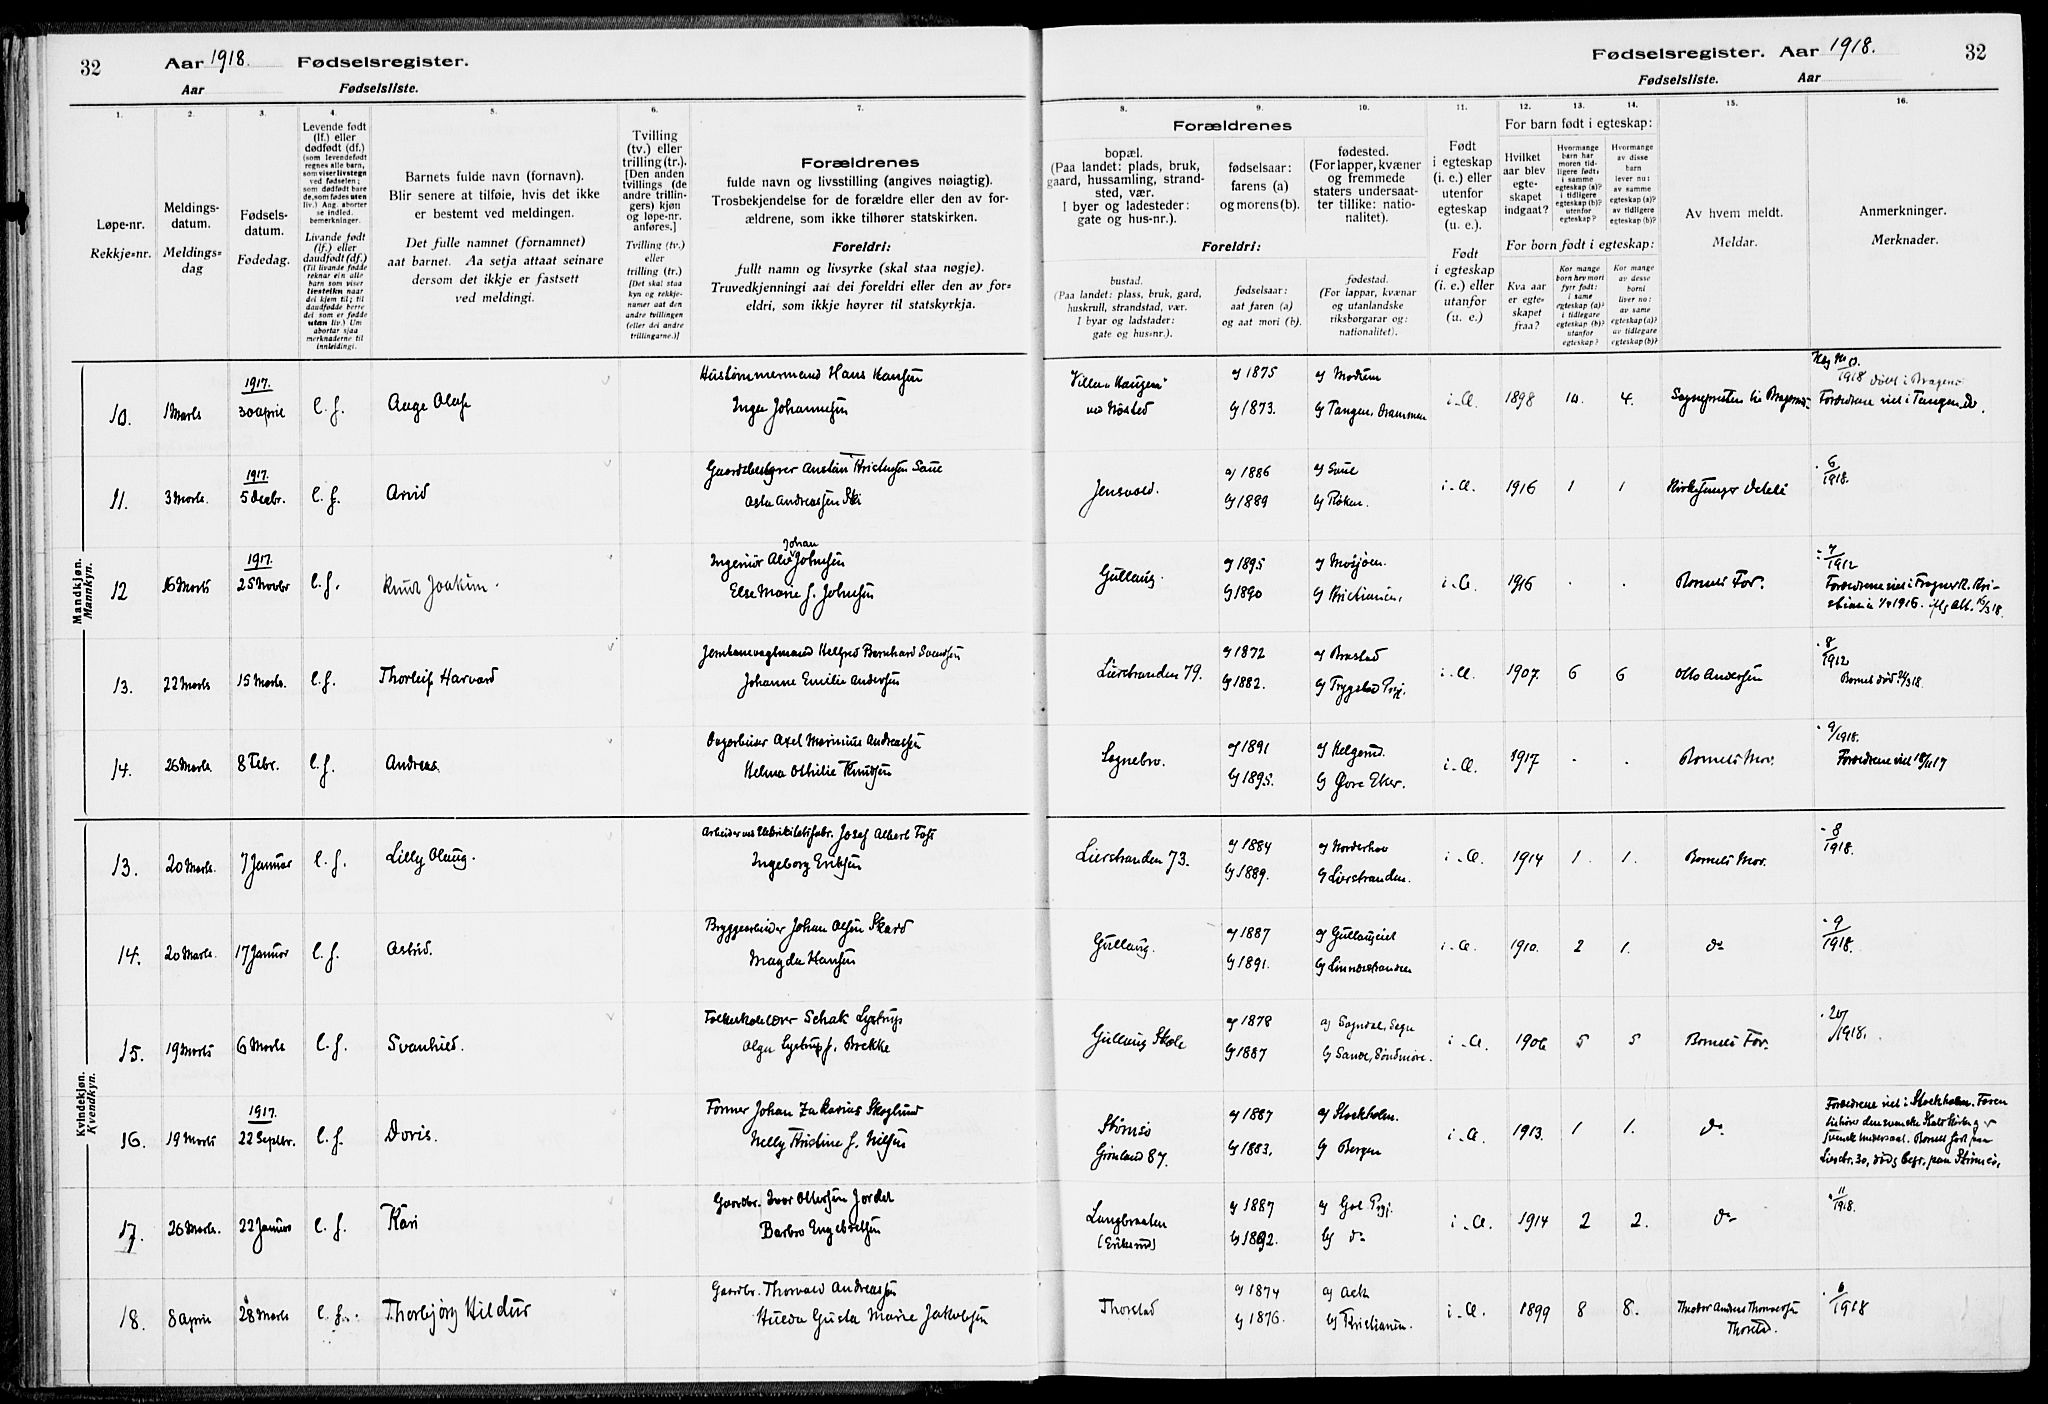 32 Aar 1918. Fødselsregister.
Aar Fødselsliste.
Fødselsregister. Aar 1918. 32
Fødselsliste. Aar
1. 2. 3. 4. 5. 6. 7. 8. 9. 10. 11. 12. 13. 14. 15. 16.
Løpe-nr.
Rekkje-nr.
Meldings-
datum.
Meldings-
dag
Fødsels-
datum.
Fødedag.
Levende født
(lf.) eller
dødfødt (df.)
(som levendefødt
regnes alle barn,
som viser livstegn
ved fødselen;
som dødfødt bare
de, som fødes uten
liv.) Ang. aborter
se indled.
bemerkninger.
Livande født
(lf.) eller
daudfødt (df.)
(Til livande fødde
reknar ein alle
barn som viser
livsteikn naar
dei kjem til; til
daudfødde berre
dei som er fødde
utan liv.) Um
abortar sjaa
merknaderne til
innleidingi.
Barnets fulde navn (fornavn).
Blir senere at tilføie, hvis det ikke
er bestemt ved meldingen.
Det fulle namnet (fornamnet)
aat barnet. Aa setja attaat seinare
dersom det ikkje er fastsett
ved meldingi.
Tvilling
(tv.) eller
trilling (tr.).
[Den anden
tvillings (de
andre trillin-
gers) kjøn
og løpe-nr.
anføres.]
Tvilling (tv.)
eller
trilling (tr.)
[Det skal staa
kyn og rekkje-
numer aat den
andre tvillingen
(eller dei andre
trillingarne.)]
Forældrenes
fulde navn og livsstilling (angives nøiagtig).
Trosbekjendelse for de forældre eller den av for-
ældrene, som ikke tilhører statskirken.
Foreldri:
fullt namn og livsyrke (skal staa nøgje).
Truvedkjenningi aat dei foreldri eller den av for-
eldri, som ikkje høyrer til statskyrkja.
Forældrenes
bopæl.
(Paa landet: plads, bruk,
gaard, hussamling, strand-
sted, vær.
I byer og ladesteder:
gate og hus-nr.).
fødselsaar:
farens (a)
og morens (b).
fødested.
(For lapper, kvæner
og fremmede
staters undersaat-
ter tillike: natio-
nalitet).
Foreldri:
bustad.
(Paa landet: plass, bruk, gard,
huskrull, strandstad, vær.
I byar og ladstader:
gate og hus-nr.).
fødselsaar:
aat faren (a)
og aat mori (b).
fødestad.
(For lappar, kvænar
og utanlandske
riksborgarar og:
nationalitet).
Født
i egteskap
(i. e.) eller
utenfor
egteskap
(u. e.).
Født
i egteskap
(i. e.) eller
utanfor
(u. e.)
For barn født i egteskap:
Hvilket
aar blev
egte-
skapet
indgaat?
Hvormange
barn har
moren tid-
ligere født:
i samme
egteskap (a)?
i tidligere
egteskap (b)?
utenfor
egteskap?
Hvormange
av disse
barn
lever nu:
av samme
egteskap (a)?
av tidligere
egteskap (b)?
For born født i egteskap:
Kva aar
er egte-
skapet
fraa?
Kor mange
born hev mori
fyrr født:
i same
egteskap (a)?
i tidlegare
egteskap (b)?
utanfor
egteskap?
Kor mange
av desse
borni
liver no:
av same
egteskap (a)?
av tidlegare
egteskap (b)?
Av hvem meldt.
Meldar.
Anmerkninger.
Merknader.
Mandkjøn.
Mannkyn.
10. 1 Marts 1917. 30 april l. f. Aage Olaf Hustømmermand Hans Hansen
Inga Johannesen
Villa "Haugen"
ved Nøsted
a) 1875 b) 1873. a) Modum b) Tangen, Drammen i. Æ. 1898 10. 4. Sognepresten til Bragernes
1918 døbt i Bragernes
Forældrene viet i Tangen
11. 3 Marts. 1917. 5 Decbr. l. f. Arvid Gaardbestyrer Anstein Kristensen Saue
Asta Andreassen Ski
Jensvold. a) 1886 b) 1889 a) Saue b) Røken. i. Æ. 1916 1 1 Kirkesanger
6/1918.
12 16 Marts 1917. 25 Novbr l. f. Knut Joakim. Ingeniør Alv Johan Johnsen
Else Marie f. Johnsen
Gullaug. a) 1895 b) 1890 a) Mosjøen. b) Kristiania, i. Æ. 1916 . . Barnets Far.
7/1912
Forældrene viet i Fragner K. Kri-
stiania 1916. ifg att. 16/3 18.
13. 22 Marts 15 Marts. l. f. Thorleif Harvard Jernbanevagtmand Helfred Bernhard Svendsen
Johanne Emilie Andersen
Lierstranden 79. a) 1872 b) 1882. a) Brastad b) Trygstad Prgj. i. Æ. 1907. 6 6 Otto Andersen
8/1912
Barnet død 21/3 18.
14. 26 Marts. 8 Febr. l. f. Andreas. Dagarbeider Axel Marinius Andreassen
Helma Othilie Knudsen
Sognebro. a) 1891 b) 1895. a) Helgerud. b) Øvre Eker. i. Æ. 1917 . . Barnets Mor.
9/1918.
Forældrene viet 18/11 17
Kvindekjøn.
Kvendkyn.
13. 20 Marts. 7 Januar l. f. Lilly Olaug. Arbeider ved Elektricitetsfabr. Josef Albert Toft
Ingeborg Eriksen
Lierstranden 73. a) 1884 b) 1889. a) Norderhov b) Lierstranden. i. Æ. 1914 1. 1. Barnets Mor.
8/1918.
14. 20 Marts. 17 Januar l. f. Astrid. Bryggearbeider Johan Olsen Skard
Magda Hansen
Gullaug. a) 1887 b) 1891. a) Gullaugeiet b) Linnesstranden i. Æ. 1910. 2 1. do
9/1918.
15. 19 Marts 6 Marts l. f. Svanhild. Folkeskolelærer Schak Lystrup
Olga Lystrup f. Brekke
Gullaug Skole a) 1878 b) 1887 a) Sogndal, Sogn b) Sande, Søndmøre. i. Æ. 1906 5 5 Barnets Far.
/1918.
16. 19 Marts 1917. 22 Septbr. l. f. Doris. Former Johan Zakarias Skoglund
Nelly Kristine f. Nilsen
Strømsø
Grønland 87. a) 1887 b) 1883. a) Stockholm. b) Bergen i. Æ. 1913. 1 1. do
Forældrene viet i Stockholm. Faren
tilhører den svenske Statskirke og er
svensk Undersaat. Barnet født paa
Lierstr. 30, død og begr. paa Strømsø.
17. 26 Marts. 22 Januar l. f. Kari Gaardbr. Ivar Ottersen Jordet
Barbro Engebretsen
Langbraaten
(Eriksrud) a) 1887 b) 1892. a) Gol Prgj. b) do i. Æ. 1914 2 2. do
11/1918.
18. 8 April 28 Marts l. f. Thorbjørg Hildur Gaardbr. Thorvald Andreassen
Hulda Gusta Marie Jakobsen
Thorstad a) 1874 b) 1876. a) Ask b) Kristiania. i. Æ. 1899 8 8. Theodor Anders Thorvaldsen
Thorstad.
6/1918